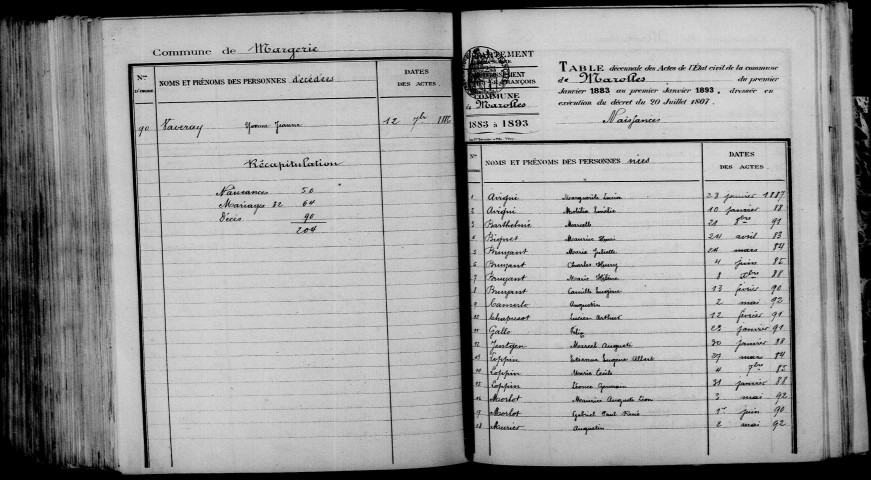 Commune de Margerie
Nos D'ORDRE
NOMS ET PRÉNOMS DES PERSONNES décédées
DATES DES ACTES.
90 Vaveray Jeanne 12 7bre
Récapitulation
Naissances 50
Mariages 82 64
Décès 90
204
DÉPARTEMENT
COMMUNE
de Marolles
1883 à 1893
TABLE décennale des Actes de l'État civil de la commune
de Marolles du premier
Janvier 1883 au premier Janvier 1893, dressée en
exécution du décret du 20 Juillet 1807.
Naissances
Nos
NOMS ET PRÉNOMS DES PERSONNES nées
DATES DES ACTES.
1 Avigné Marguerite 23 janvier 1887
2 Avigné 10 janvier 88
3 Barthelmé Marcelle 21 8bre 91
4 Bignet Maurice Henri 24 avril 83
5 Bruyant Maria Juliette 24 mars 84
6 Bruyant Charles Henry 4 juin 85
7 Bruyant Marie Hélène 8 Xbre 88
8 Bruyant Camille Eugène 13 février 90
9 Camerlo Augustin 2 mai 92
10 Chapusot Lucien Arthur 12 février 91
11 Gallo 23 janvier 91
12 Jentgen Marcel Auguste 30 janvier 88
13 Loppin Etienne Eugène Albert 27 mars 84
14 Loppin Marie Cécile 4 7bre 85
15 Loppin Léonce Germain 31 janvier 88
16 Morlot Maurice Auguste Léon 3 mai 92
17 Morlot Gabriel Paul René 1er juin 90
18 Meunier Augustin 2 mai 92